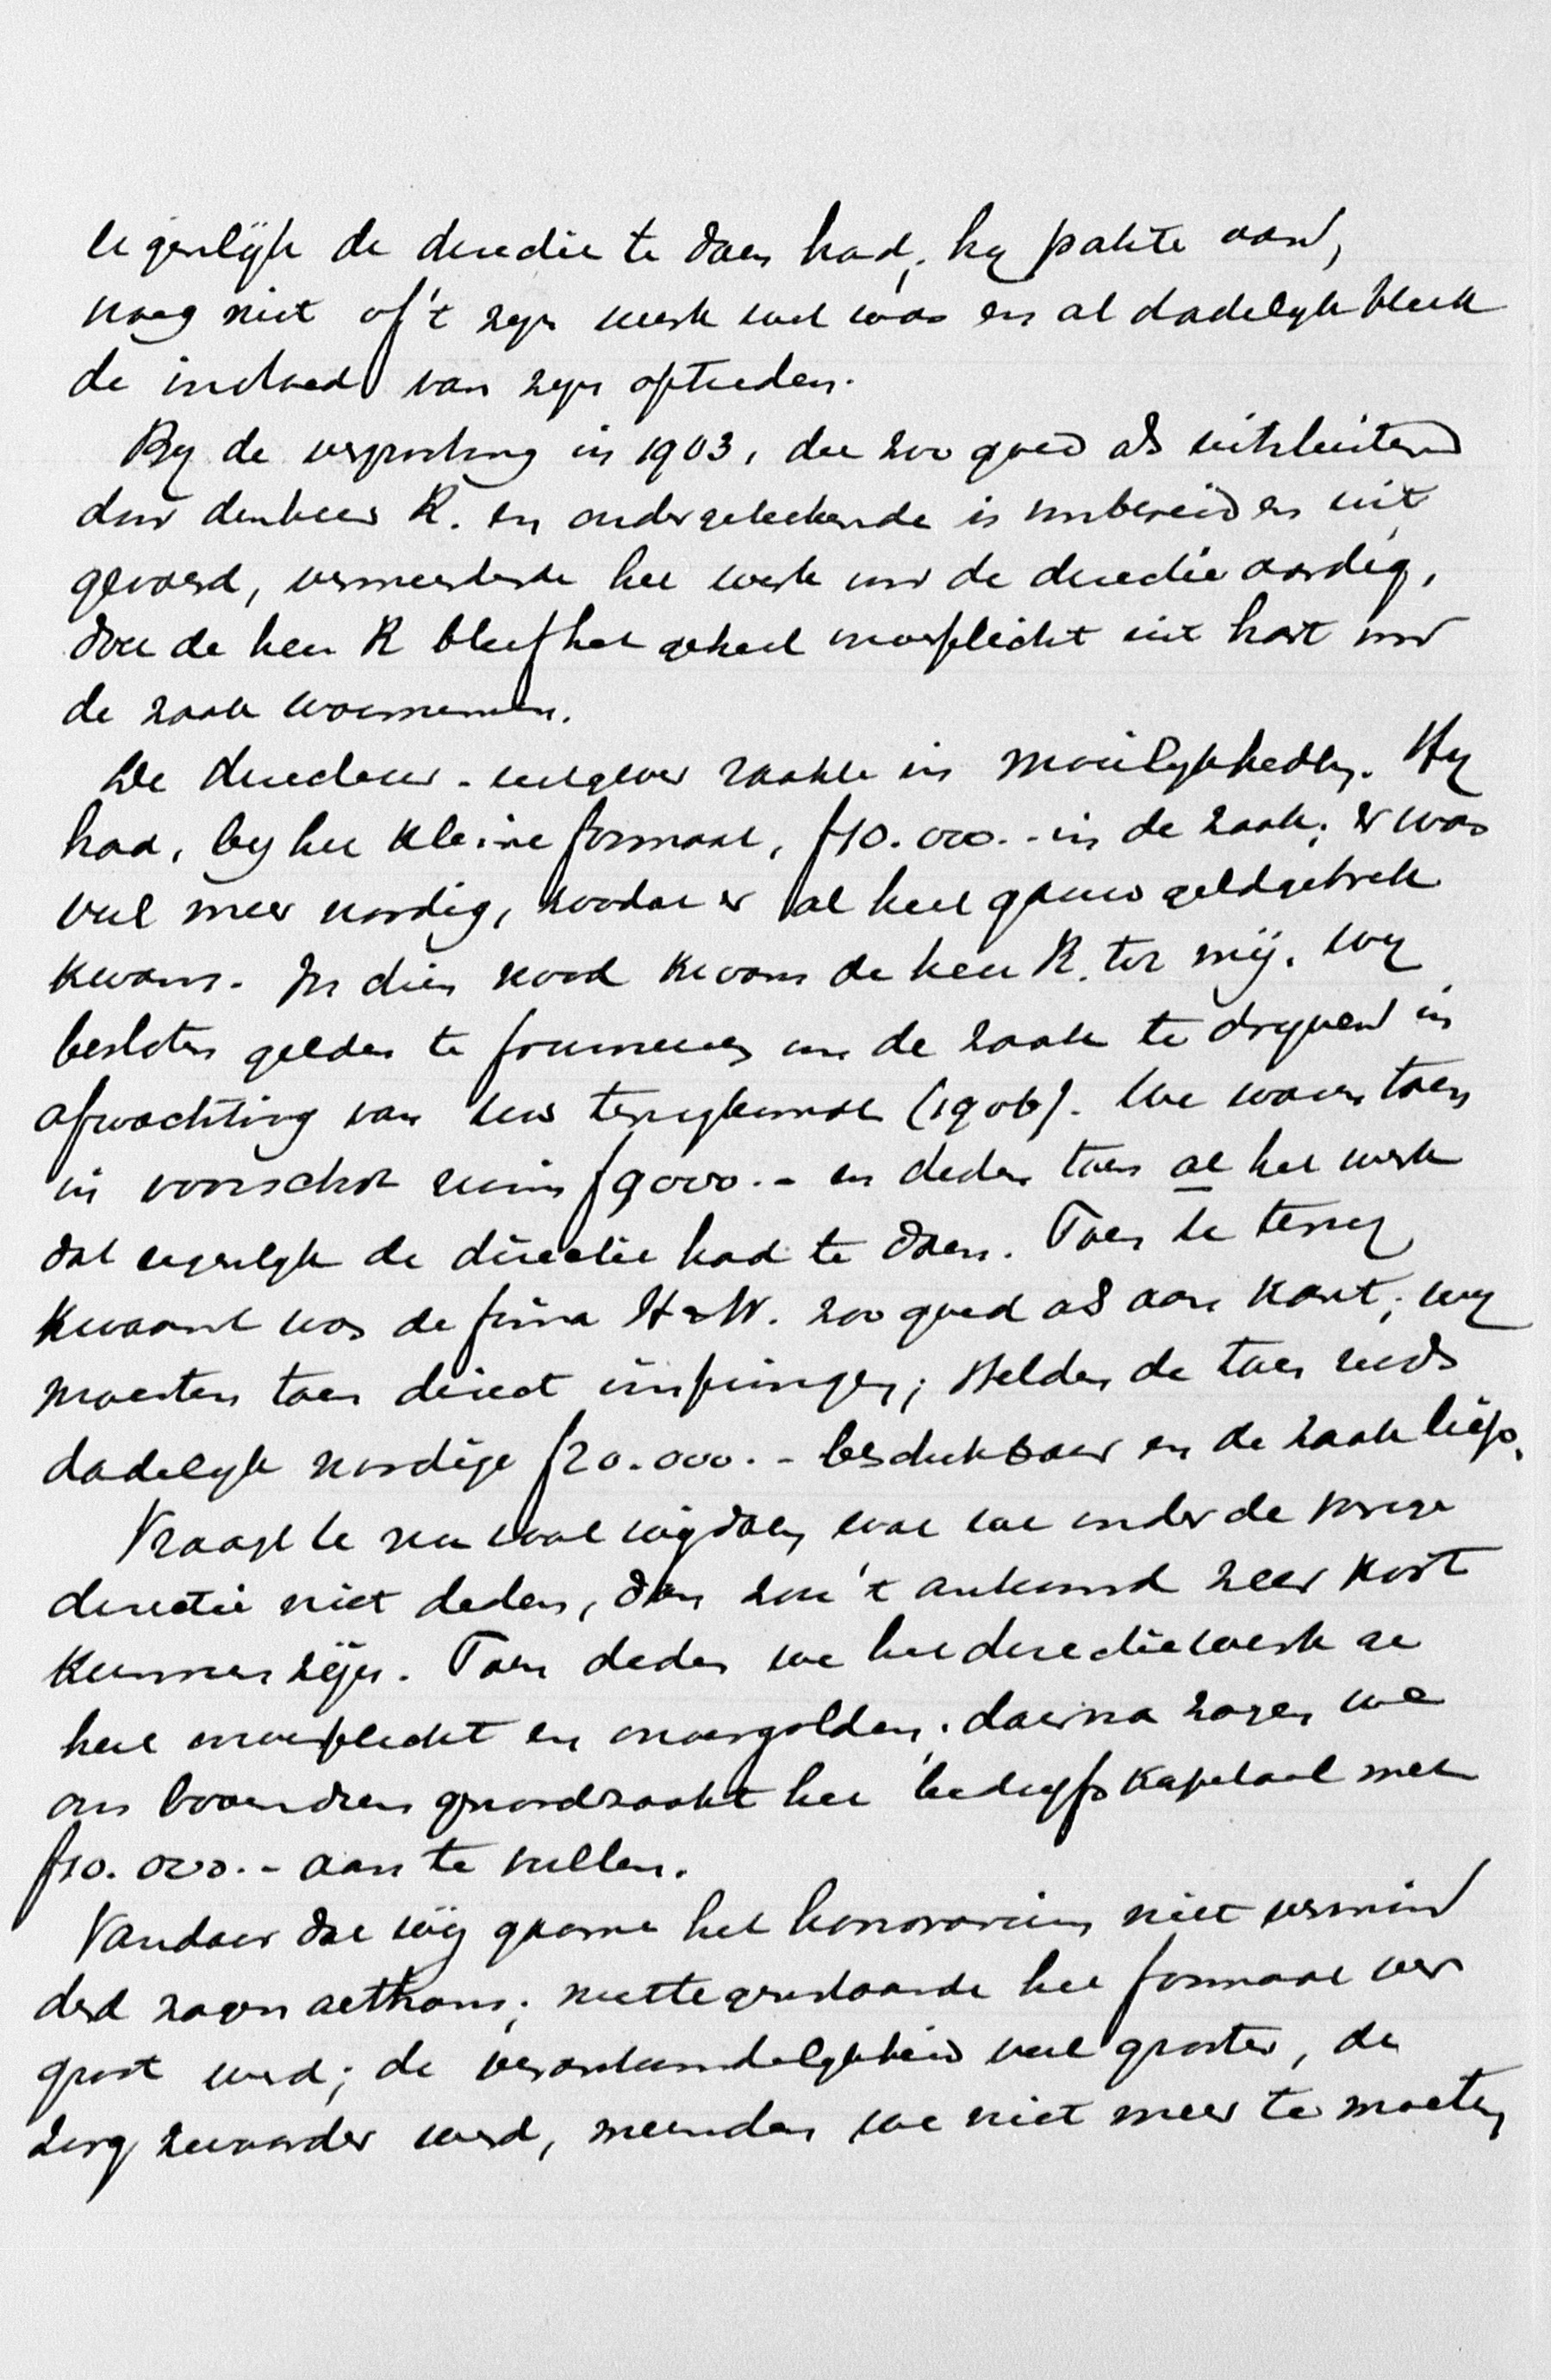 eigenlijk de directie te doen had; hy pakte aan,
vroeg niet of 't zyn werk wel was en al dadelyk bleek
de invloed van zyn optreden.
By de vergrooting in 1903, die zoo goed als uitsluitend
door den heer R. en ondergeteekende is voorbereid en uit
gevoerd, vermeerderde het werk voor de directie aardig,
doch de heer R bleef het geheel onverplicht uit hart voor
de zaak waarnemen.
De directeur-uitgever raakte in moeilykheden. Hy
had, by het kleine formaat, f10.000.- in de zaak; er was
veel meer noodig, zoodat er al heel gauw geldgebrek
kwam. In dien nood kwam de heer R. tot mij. Wy
besloten gelden te fourneeren om de zaak te dryven in
afwachting van Uw terugkomst (1906). We waren toen
in voorschot ruim f9000.- en deden toen al het werk
dat eigenlyk de directie had te doen. Toen U terug
kwaamt was de firma H & W. zoo goed als aan kant; wy
moesten toen direct inspringen; stelden de toen reeds
dadelyk noodige f20.000.- beschikbaar en de zaak liep.
Vraagt U nu wat wij doen, wat we onder de vorige
directie niet deden, dan zou 't antwoord zeer kort
kunnen zijn. Toen deden we het directiewerk ge
heel onverplicht en onvergolden; daarna zagen we
ons bovendien genoodzaakt het bedryfskapitaal met
f10.000.- aan te vullen.
Vandaar dat wij gaarne het honorarium niet vermin
derd zagen althans; niettegenstaande het formaat ver
groot werd; de verantwoordelykheid veel grooter, de
zorg zwaarder werd, meenden we niet meer te moeten